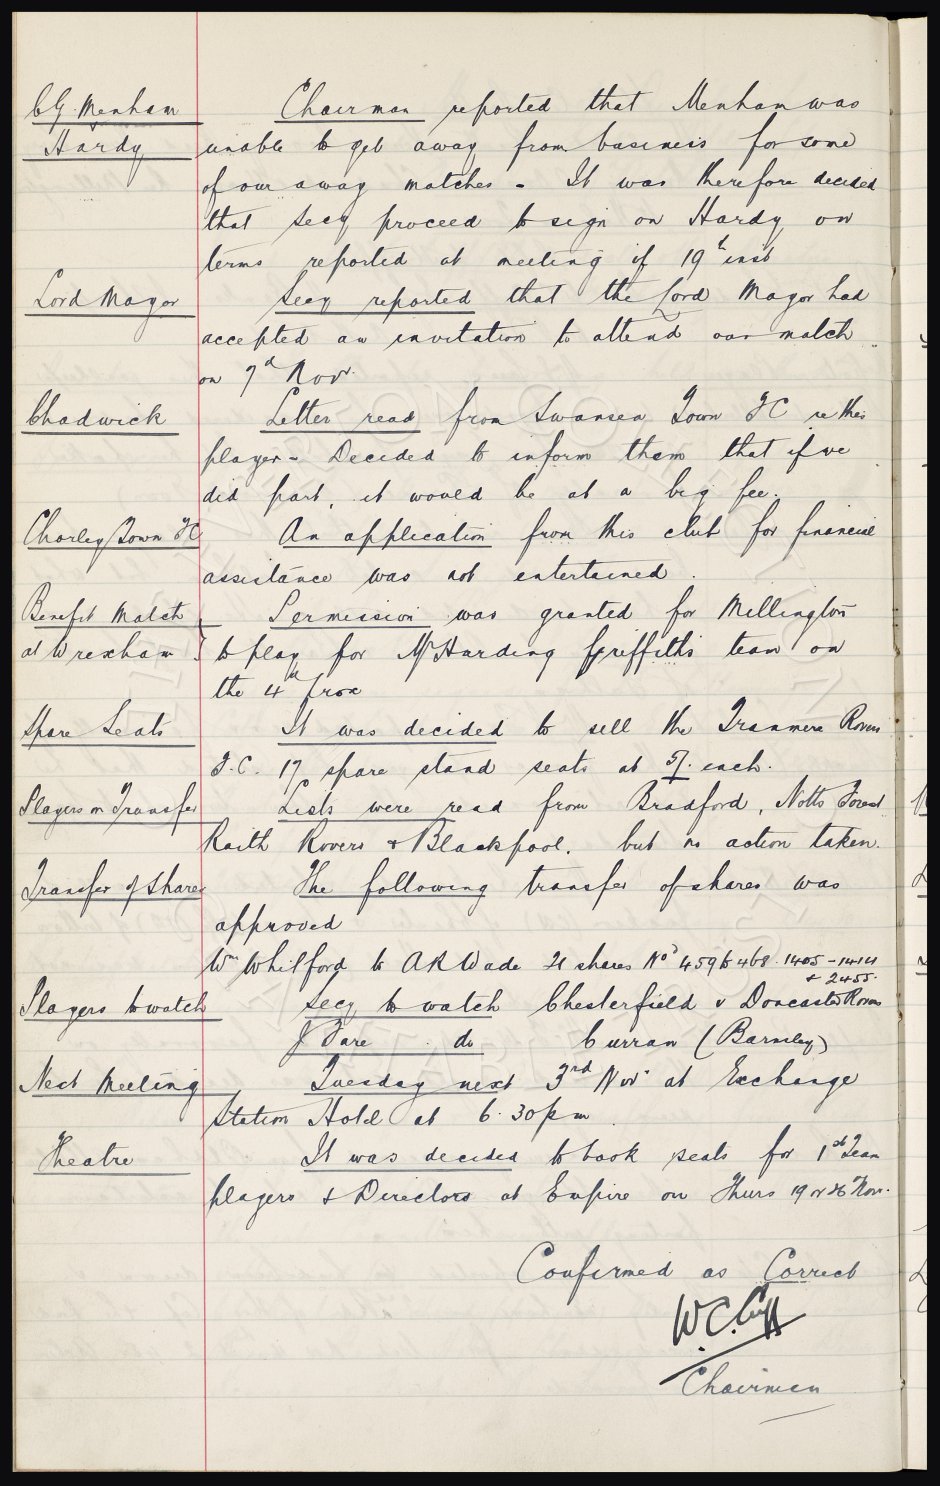 C.G. Menham
Hardy
Chairman reported that Menham was
unable to get away from business for some
of our away matches - It was therefore decided
that Secy proceed to sign on Hardy on
terms reported at meeting of 19th inst
Lord Mayor
Secy reported that the Lord Mayor had
accepted an invitation to attend our match
on 7th Nov.
Chadwick
Letter read from Swansea Town FC re this
player - Decided to inform them that if we
did part, it would be at a big fee.
Chorley Town FC
An application from this club for financial
assistance was not entertained.
Benefit Match
at Wrexham }
Permission was granted for Millington
to play for Mr Harding Griffiths team on
the 4th prox
Spare Seats
It was decided to sell the Tranmere Rovers
F.C. 17 spare stand seats at 5/. each.
Players on Transfer
Lists were read from Bradford, Notts Forest
Raith Rovers & Blackpool. but no action taken.
Transfer of Shares
The following transfer of shares was
approved
Wm Whitford to A R Wade 21 shares Nos 459 to 468. 1405 - 1414
& 2455.
Players to watch
Secy to watch Chesterfield v Doncaster Rovers
J Fare . do Curran (Barnsley)
Next Meeting
Tuesday next 3rd Nov. at Exchange
Station Hotel at 6.30pm
Theatre
It was decided to book seats for 1st Team
players & Directors at Empire on Thurs 19 or 26 Nov.
Confirmed as Correct
W.C. Cuff
Chairman